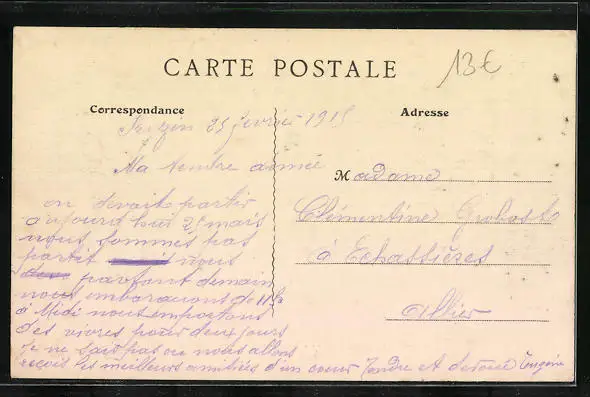 CARTE POSTALE
13€
Correspondance
Adresse
25 février 1915
Ma tendre aimée
on devait partir
aujourd'hui 25 mais
nous sommes pas
partit nous
partont demain
nous embarquons de 11 h
à Midi nous emportons
des vivres pour deux jours
je ne sait pas ou nous allons
reçois les meilleurs amitiées d'un coeur Tendre et dévoué Eugène
Madame
Clémentine
à Echassières
Allier